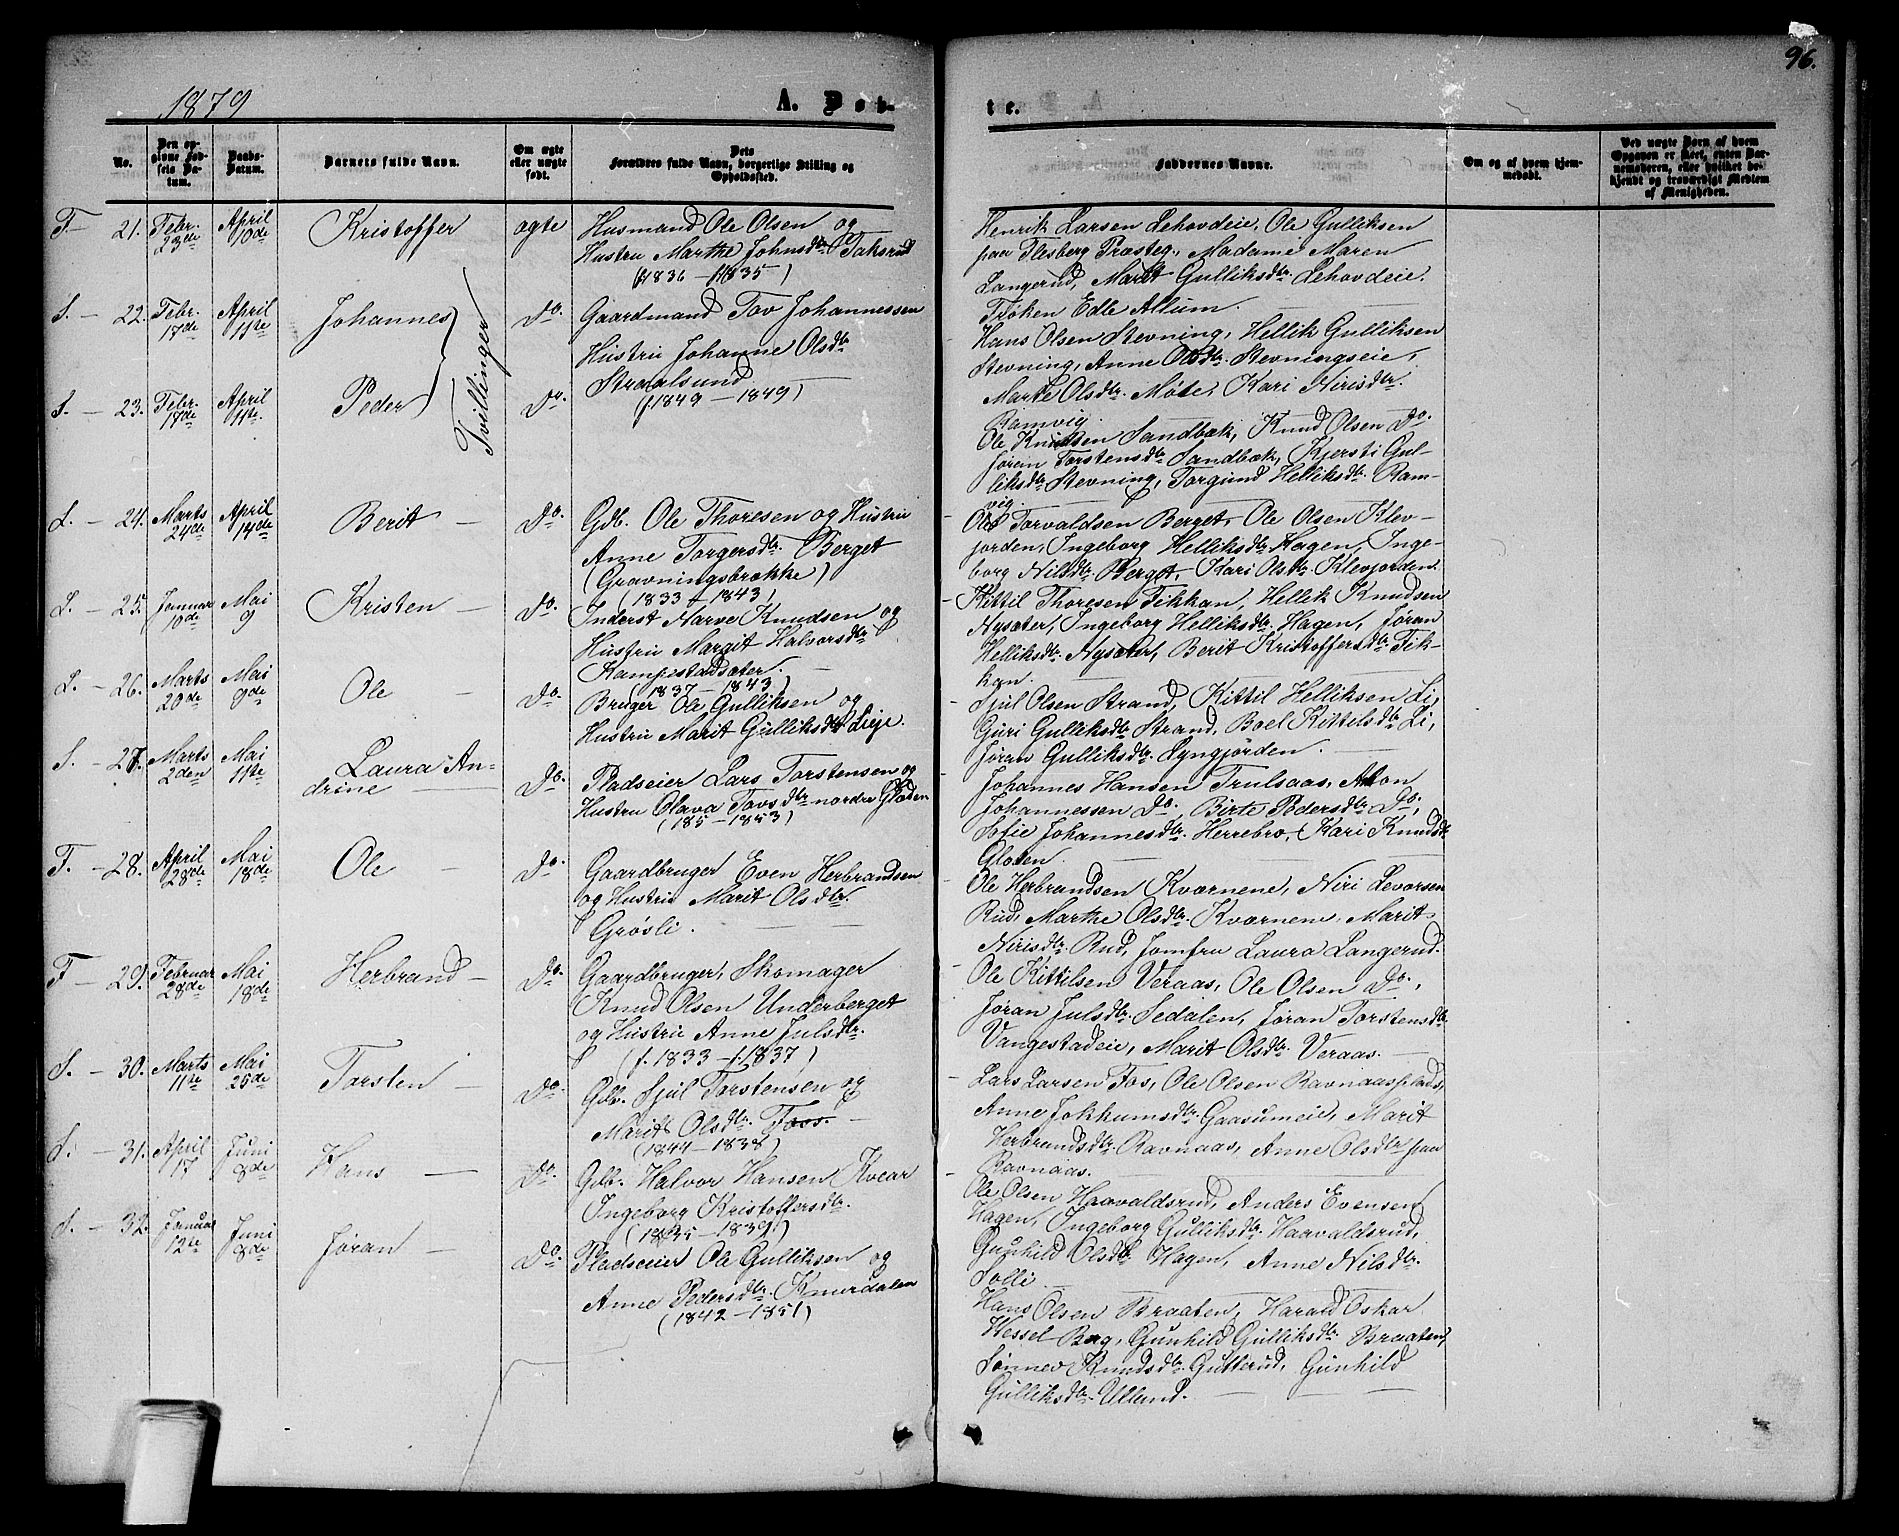 1879
A. Døb-
te.
96.
No.
Den op-
givne Fød-
sels Da-
tum.
Daabs-
Datum.
Barnets fulde Navn.
Om ægte
eller uægte
født.
Dets
Forældres fulde Navn, borgerlige Stilling og
Opholdssted.
Faddernes Navne.
Om og af hvem hjem-
medøbt.
Ved uægte Børn af hvem
Opgaven er skeet, enten Bar-
nemoderen, eller hvilket be-
kjendt og troværdigt Medlem
af Menigheden.
F- 21. Febr. 23de April 10de Kristoffer ægte
Husmand Ole Olsen og
Hustru Marthe Johnsdtr. Taksrud
(f. 1836 - f. 1835)
Henrik Larsen Lehovdeie, Ole Gulliksen
paa Flesberg Præsteg., Madame Maren
Langerud, Marit Gulliksdtr. Lehovdeie.
Frøken Edle Allum.
S. - 22. Febr. 17de April 11te Johannes Do.
Tvillinger
Gaardmand Tov Johannessen
Hustru Johanne Olsdtr
Straalsund
(f. 1849 - 1849)
Hans Olsen Stevning, Hellik Gulliksen
Stevning, Anne Olsdtr. Stevningseie,
Marte Olsdtr. Møte, Kari Nirisdtr.
Ramvig.
S. - 23. Febr. 17de April 11te. Peder Do.
Ole Knudsen Sandbæk, Knud Olsen Do.
Jøran Torstensdtr. Sandbæk, Kjersti Gul-
liksdtr. Stevning, Torgund Helliksdtr. Ram-
vig.
L. - 24. Marts 24de April 14de Berit - Do.
Gdb. Ole Thoresen og Hustru
Anne Torgersdtr. Berget
(Gravningsbrække)
(1833 - 1843)
Ole Torvaldsen Berget, Ole Olsen Klev-
jorden, Ingeborg Helliksdtr. Hagen, Inge-
borg Nilsdtr. Berget, Kari Olsdtr. Klevjorden.
L. - 25. Januar 10de Mai 9 Kristen - Do.
Inderst Narve Knudsen og
Hustru Margit Halvorsdtr.
Kampestadsæter.
(1837 - 1843)
- Kittil Thoresen Fikkan, Hellik Knudsen
Nysæter, Ingeborg Helliksdtr. Hagen, Jøran
Helliksdtr. Nysæter, Berit Kristoffersdtr. Fik-
kan.
L. - 26. Marts 20de Mai 9de Ole - Do.
Bruger Ole Gulliksen og
Hustru Marit Gulliksdtr. Lieje.
- Sjul Olsen Strand, Kittil Helliksen Li,
Guri Gulliksdtr. Strand, Boel Kittilsdtr. Li,
Jøran Gulliksdtr. Lyngjorden.
S. - 27. Marts 2den Mai 11te Laura An-
drine Do.
Pladseier Lars Torstensen og
Hustru Olava Tovsdtr. nordre Gloden
(185 - 1853)
Johannes Hansen Trulsaas, Anton
Johannessen Do., Birte Pedersdtr. Do.,
Sofie Johannesdtr. Herrebro, Kari Knudsdtr.
Gloden.
F. - 28. April 28de Mai 18de Ole - Do.
Gaardbruger Even Herbrandsen
og Hustru Marit Olsdtr.
Grøsli.
- Ole Herbrandsen Kværnene, Niri Levorsen
Rud, Marthe Olsdtr. Kværnene, Marit
Nirisdtr. Rud, Jomfru Laura Langerud.
F - 29. Februar 28de Mai 18de Herbrand - Do.
Gaardbruger, Skomager
Knud Olsen Underberget
og Hustru Anne Julsdtr.
(f. 1833 - f. 1837)
- Ole Kittilsen Veraas, Ole Olsen Do.,
Jøran Julsdtr. Sedalen, Jøran Torstensdtr.
Vangestadeie, Marit Olsdtr. Veraas.
S. - 30. Marts 11te Mai 25de Torsten - Do.
Gdb. Sjul Torstensen og
Marit Olsdtr. Foss.
(1844 - 1838)
- Lars Larsen Fos, Ole Olsen Ravnaasplads,
Anne Jokhumsdtr. Gaasumeie, Marit
Herbrandsdtr. Ravnaas, Anne Olsdtr. paa
Ravnaas.
S. - 31. April 17 Juni 8de Hans - Do.
Gdb. Halvor Hansen Kvear
Ingeborg Kristoffersdtr.
(1835 - 1839)
- Ole Olsen Haavaldsrud, Anders Evensen
Hagen, Ingeborg Gulliksdtr. Haavaldsrud,
Gunhild Olsdtr. Hagen, Anne Nilsdtr.
Solli.
S. - 32. Januar 12te Juni 8de Jøran - Do.
Pladseier Ole Gulliksen og
Anne Pedersdtr. Knurdalen
(1842 - 1851)
Hans Olsen Braaten, Harald Oskar
Wessel Berg, Gunhild Gulliksdtr. Braaten,
Sønnev Knudsdtr. Gutterud, Gunhild
Gulliksdtr. Ullund.